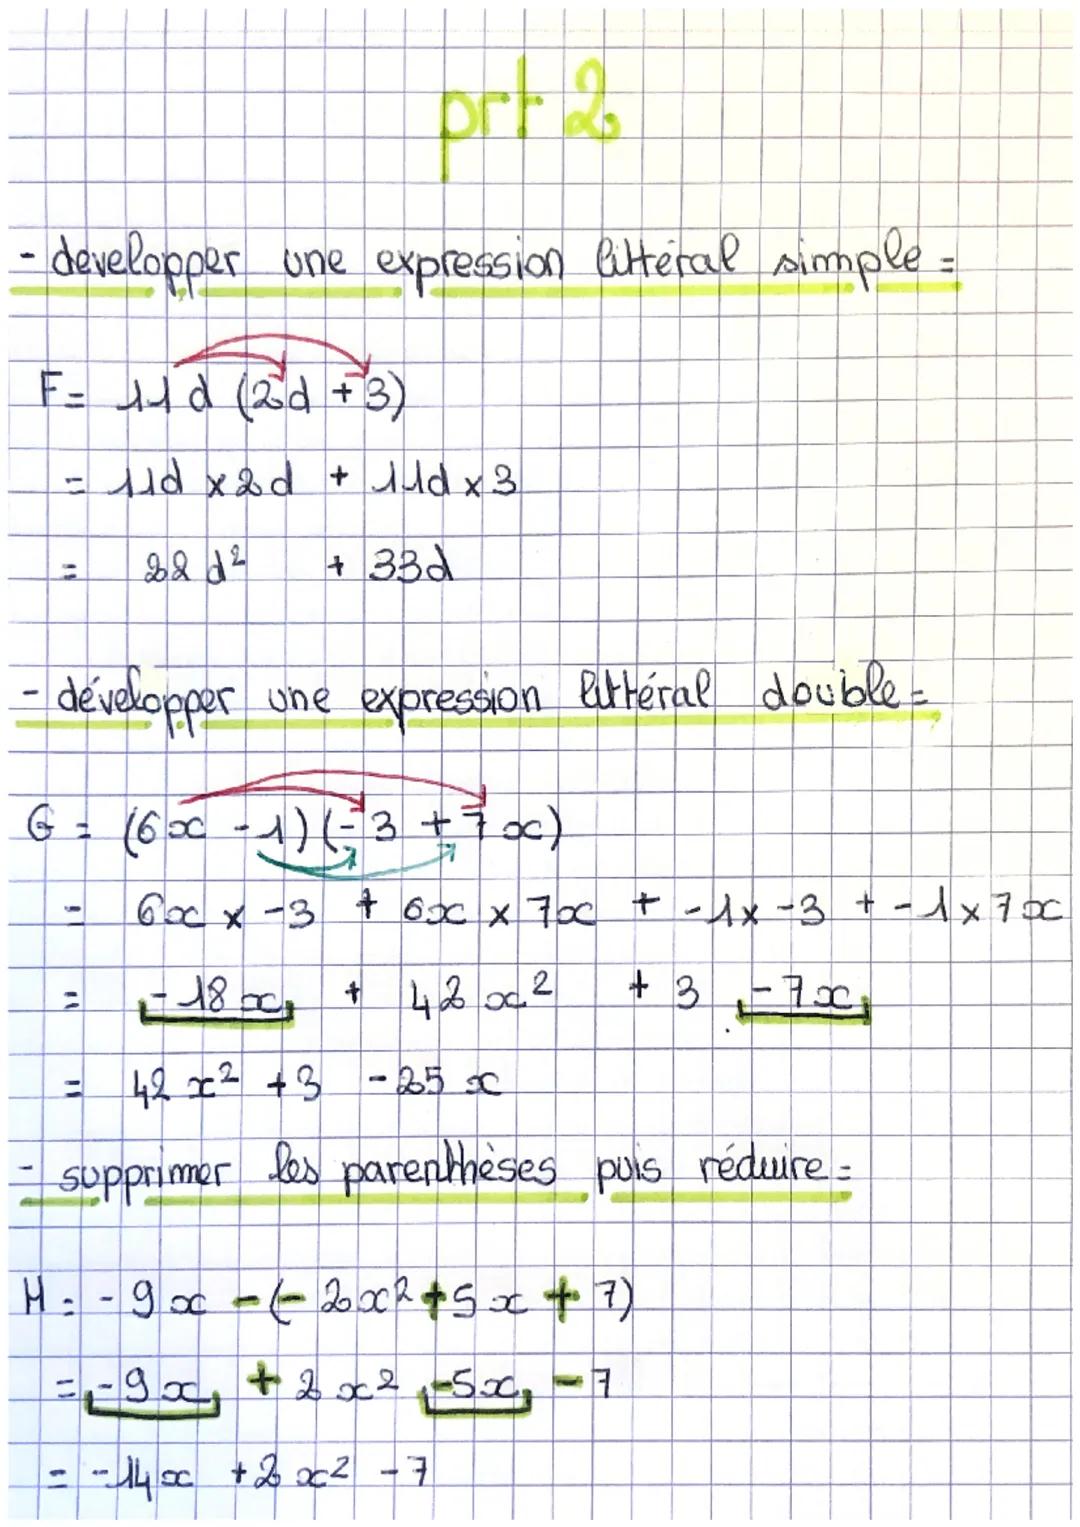 prt 2
- developper une expression littéral simple =
F = 11d (2d + 3)
= 11d x 2d + 11d x 3
= 22 d² + 33d
- développer une expression littéral double =
G = (6x - 1) (- 3 + 7x)
= 6x x -3 + 6x x 7x + -1x -3 + -1 x 7x
= -18x + 42x² + 3 -7x
= 42x² +3 -25x
- supprimer les parenthèses puis réduire =
H = -9x - (- 2x² + 5x + 7)
= -9x + 2x² -5x -7
= -14x +2x² -7